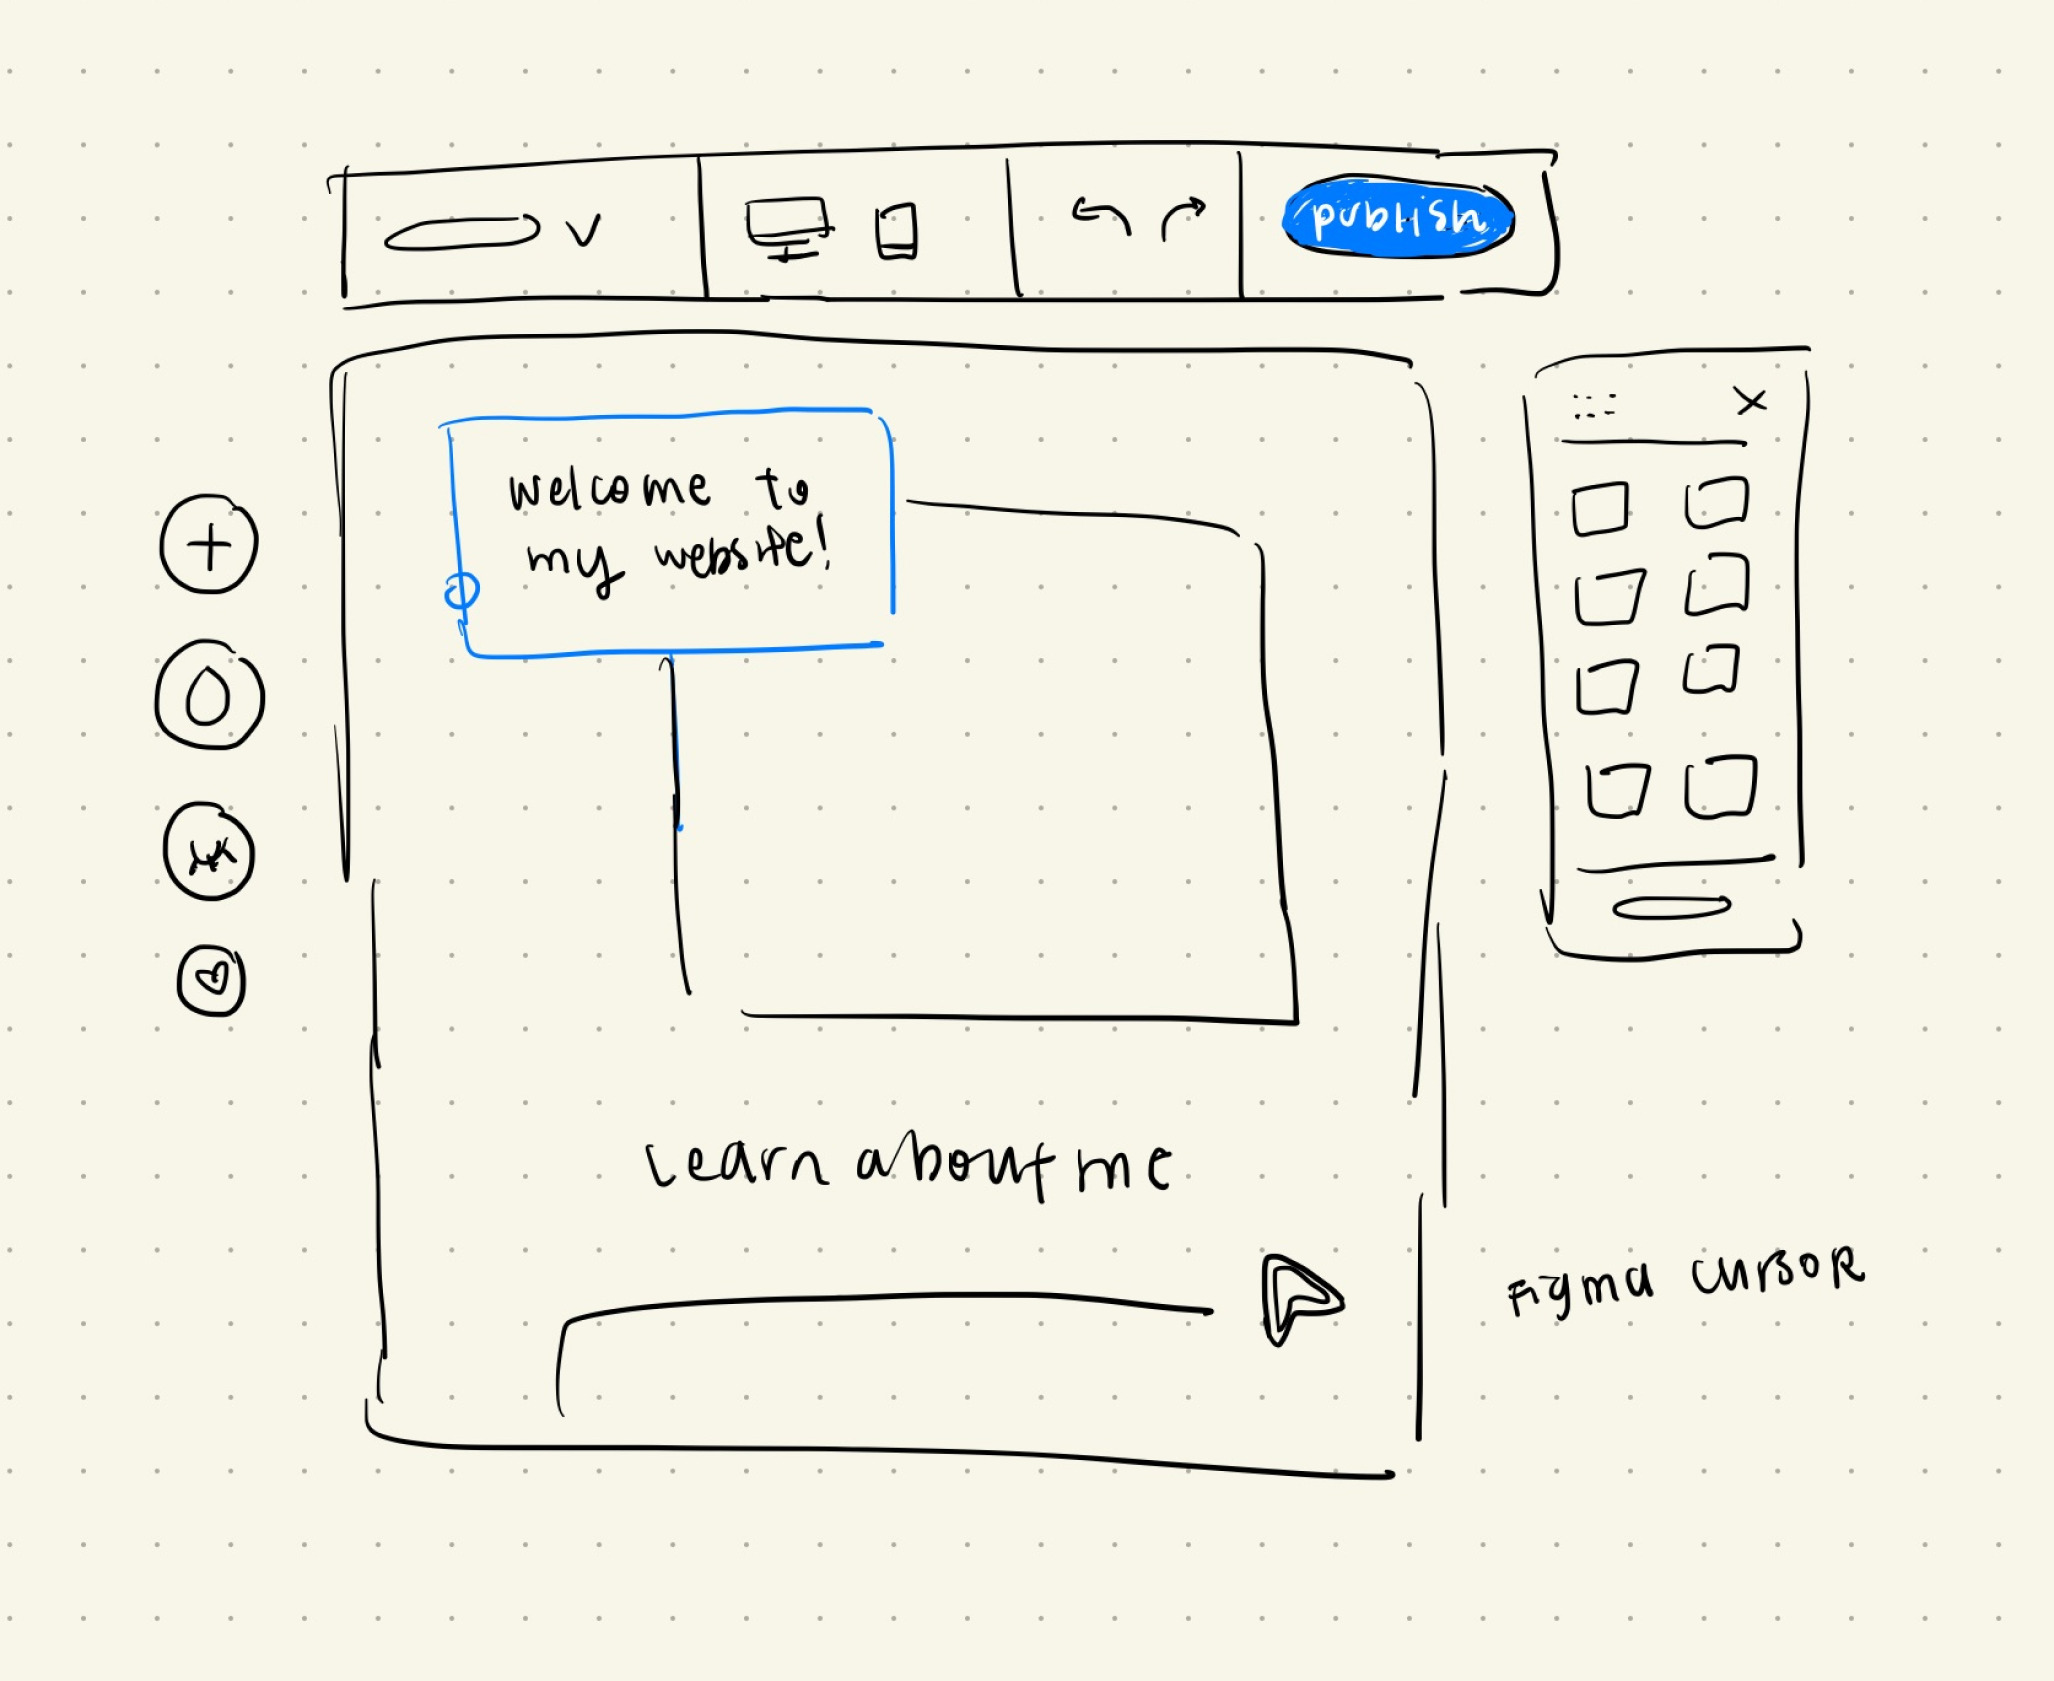 publish
welcome to
my website!
Learn about me
Figma cursor